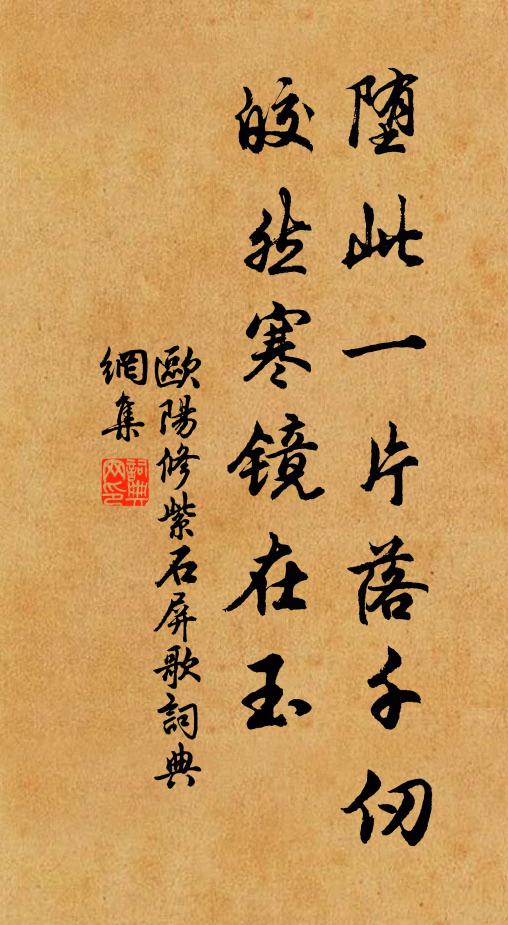 堕此一片落千仞
皎然寒镜在玉
歐陽修紫石屏歌詞典
網集
詞典
网印